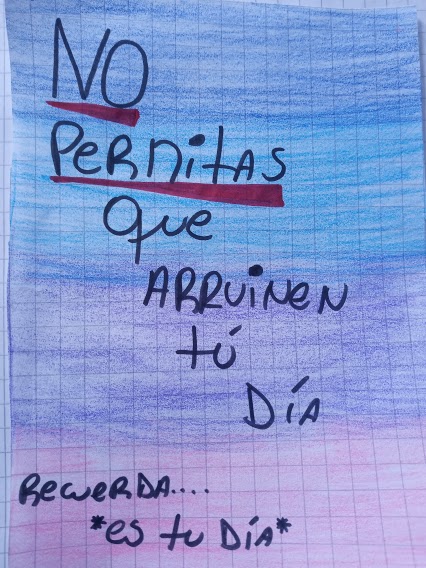 NO
PERNITAS
que
ARRUINEN
tú
DÍA
RECUERDA....
*es tu DÍA*